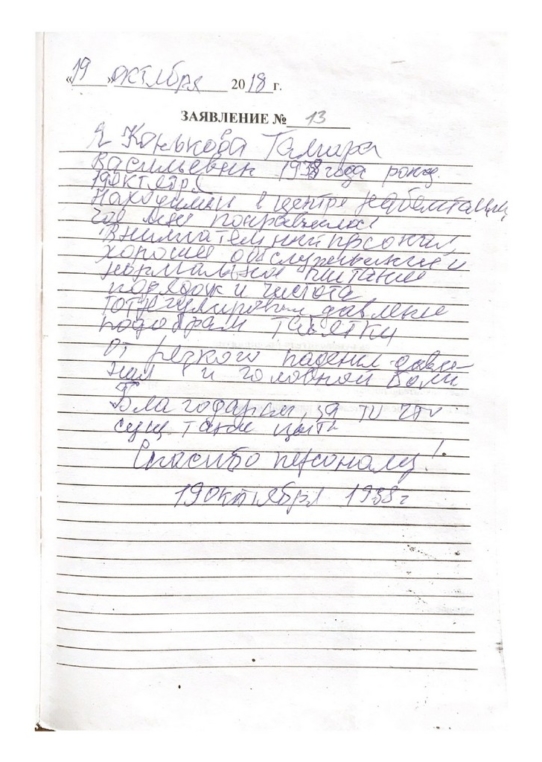 «19» октября 2018 г.
ЗАЯВЛЕНИЕ № 13
Я Конькова Тамара
Васильевна 1938 года рожд.
19 октября
Находилась в центре
мне понравилось
Внимательный
хорошее обслуживание и
нормальное питание
порядок и чистота
давление
подобрали таблетки
От резкого падения давле-
ния и головной боли
Благодарем, за то что
сущ. такие
Спасибо персоналу!
19 октября 1938 г